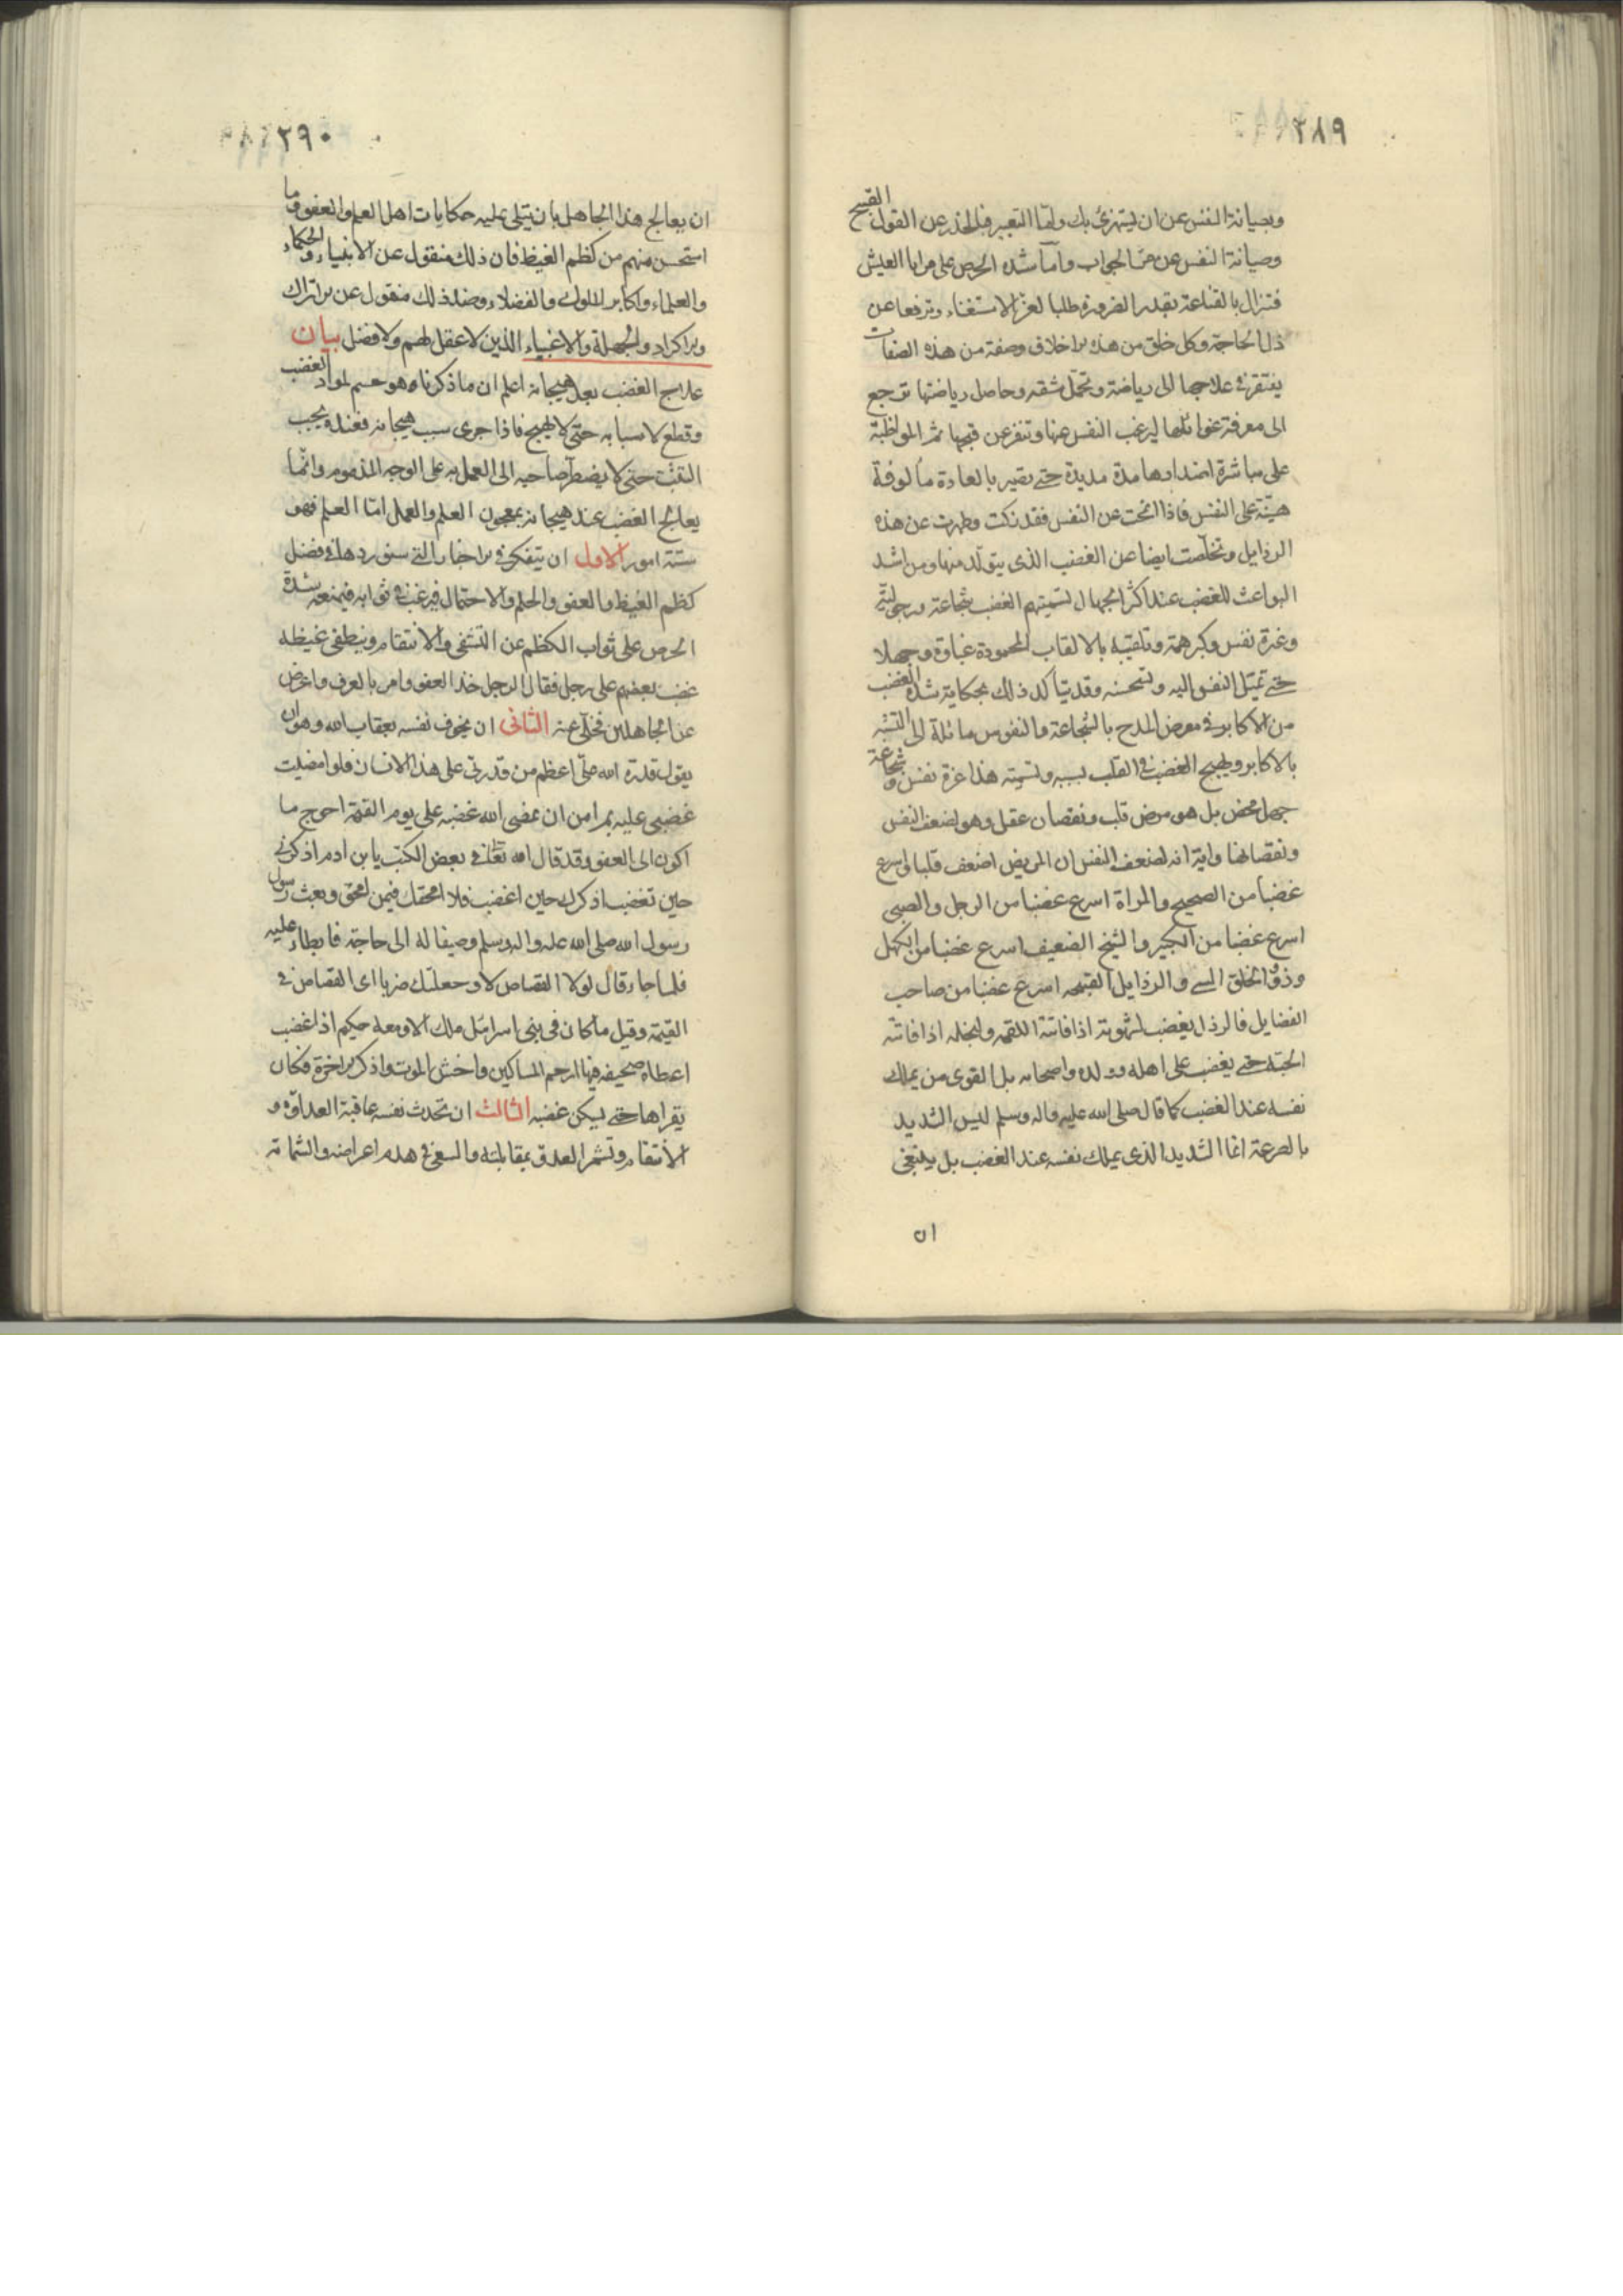 ٢٨٩
وبصيانة النفس عن ان يستهزئ بك وامّا التعيير فبالحذر عن القول القبيح
وصيانة النفس عن مرّ الجواب وامّا شدة الحرص على مزايا العيش
فتزال بالقناعة بقدر الضرورة طلبا لعزّ الاستغناء وترفعا عن
ذل الحاجة وكل خلق من هذه الاخلاق وصفة من هذه الصفات
يفتقر فى علاجها الى رياضة وتحمّل مشقه وحاصل رياضتها ترجع
الى معرفة غوائلها ليرغب النفس عنها وتنفر عن قبحها ثم المواظبة
على مباشرة اضدادها مدة مديدة حتى تصير بالعادة مألوفة
هيّنة على النفس فاذا انمحت عن النفس فقد زكت وطهرت عن هذه
الرذايل وتخلّصت ايضا عن الغضب الذى يتولّد منها ومن اشد
البواعث للغضب عند اكثر الجهال تسميتهم الغضب شجاعة ورجوليّة
وعزة نفس وكبر همة وتلقيبه بالالقاب المحمودة غباوة وجهلا
حتى تميّل النفس اليه وتستحسنه وقد يتاكد ذلك بحكاية شدة الغضب
من الاكابر فى معرض المدح بالشجاعة والنفوس مائلة الى التشبّه
بالاكابر ويهيج الغضب فى القلب بسببه وتسميته هذا عزة نفس وشجاعة
جهل محض بل هو مرض قلب ونقصان عقل وهو لضعف النفس
ونقصانها وآية انه لضعف النفس ان المريض اضعف قلبا واسرع
غضبا من الصحيح والمراة اسرع غضبا من الرجل والصبى
اسرع غضبا من الكبير والشيخ الضعيف اسرع غضبا من الكهل
وذو الخلق السيى والرذايل القبيحه اسرع غضبا من صاحب
الفضايل فالرذل يغضب لشهوته اذا فاتته اللقمه ولبخله اذا فاتته
الحبّة حتى يغضب على اهله وولده واصحابه بل القوى من يملك
نفسه عند الغضب كما قال صلى الله عليه واله وسلم ليس الشديد
بالصرعة انما الشديد الذى يملك نفسه عند الغضب بل ينبغى
ان
٢٩٠
ان يعالج هذا الجاهل بان يتلى عليه حكايات اهل العلم والعفو وما
استحسن منهم من كظم الغيظ فان ذلك منقول عن الانبياء والحكماء
والعلماء واكابر الملوك والفضلاء وضد ذلك منقول عن الاتراك
والاكراد والجهلة والاغبياء الذين لا عقل لهم ولا فضل بيان
علاج الغضب بعد هيجانه اعلم ان ما ذكرناه هو حسم لمواد الغضب
وقطع لاسبابه حتى لا يهيج فاذا جرى سبب هيجانه فعنده يجب
التثبّت حتى لا يضطر صاحبه الى العمل به على الوجه المذموم وانّما
يعالج الغضب عند هيجانه بمعجون العلم والعمل امّا العلم فهو
ستة امور الاول ان يتفكر فى الاخبار التى سنوردها فى فضل
كظم الغيظ والعفو والحلم والاحتمال فيرغب فى ثوابه فيمنعه شدة
الحرص على ثواب الكظم عن التشفى والانتقام وينطفى غيظه
غضب بعضهم على رجل فقال الرجل خذ العفو وامر بالعرف واعرض
عن الجاهلين فخلّى عنه الثانى ان يخوف نفسه بعقاب الله وهو ان
يقول قدرة الله علىّ اعظم من قدرتى على هذا الانسان فلو امضيت
غضبى عليه لم امن ان يمضى الله غضبه على يوم القيمة احوج ما
اكون الى العفو وقد قال الله تعالى فى بعض الكتب يا بن ادم اذكرنى
حين تغضب اذكرك حين اغضب فلا امحقك فيمن امحق وبعث رسول
رسول الله صلى الله عليه واله وسلم وصيفا له الى حاجة فابطاء عليه
فلما جاء قال لولا القصاص لاوجعتك ضربا اى القصاص فى
القيمة وقيل ما كان فى بنى اسرائيل ملك الا ومعه حكيم اذا غضب
اعطاه صحيفه فيها ارحم المساكين واخش الموت واذكر الاخرة فكان
يقراها حتى يسكن غضبه الثالث ان تحدث نفسه عاقبة العداوة و
الانتقام وتشمر العدوّ بمقابلته والسعى فى هدم اعراضه والشماتة